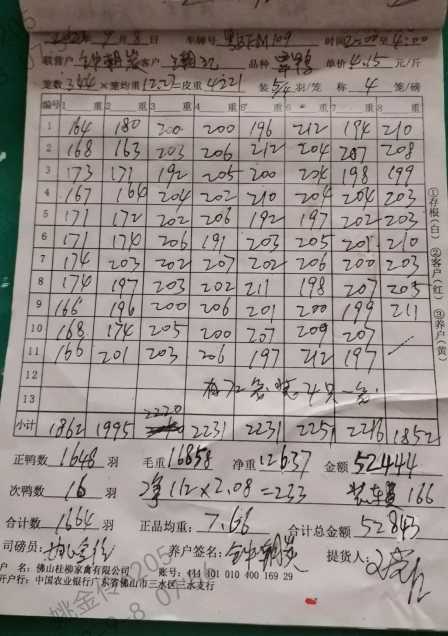 9月8日 车牌号 时间 2:00至4:00
联营户 客户 品种 单价 4.15 元/斤
笼数 344 ×笼均重 12.27 =皮重 4221 装 5/4 羽/笼 称 4 笼/磅
编号 1 重 2 重 3 重 4 重 5 重 6 重 7 重 8 重
1 164 180 200 200 196 212 194 210
2 168 163 203 206 212 204 207 208
3 173 171 192 205 200 204 198 199
4 167 164 204 202 210 204 204 203
5 171 172 202 206 192 197 202 203
6 171 174 206 191 203 205 201 210
7 174 203 202 207 202 206 200 203
8 174 197 203 202 211 198 207 205
9 166 196 200 206 201 200 199 211
10 168 174 205 200 207 209 207
11 166 201 203 206 197 212 197
12 有72笼 装4只一笼
13
小计 1862 1995 2220 2231 2231 2251 2216 1852
正鸭数 1648 羽 毛重 16858 净重 12637 金额 52444
次鸭数 16 羽 净112×2.08=233 装车费166
合计数 1664 羽 正品均重: 7.66 合计总金额 52843
司磅员: 养户签名: 提货人:
户 名: 佛山桂柳家禽有限公司 账号: 444 101 010 400 169 29
开户行: 中国农业银行广东省佛山市三水区三水支行
①存根(白) ②客户(红) ③养户(黄)